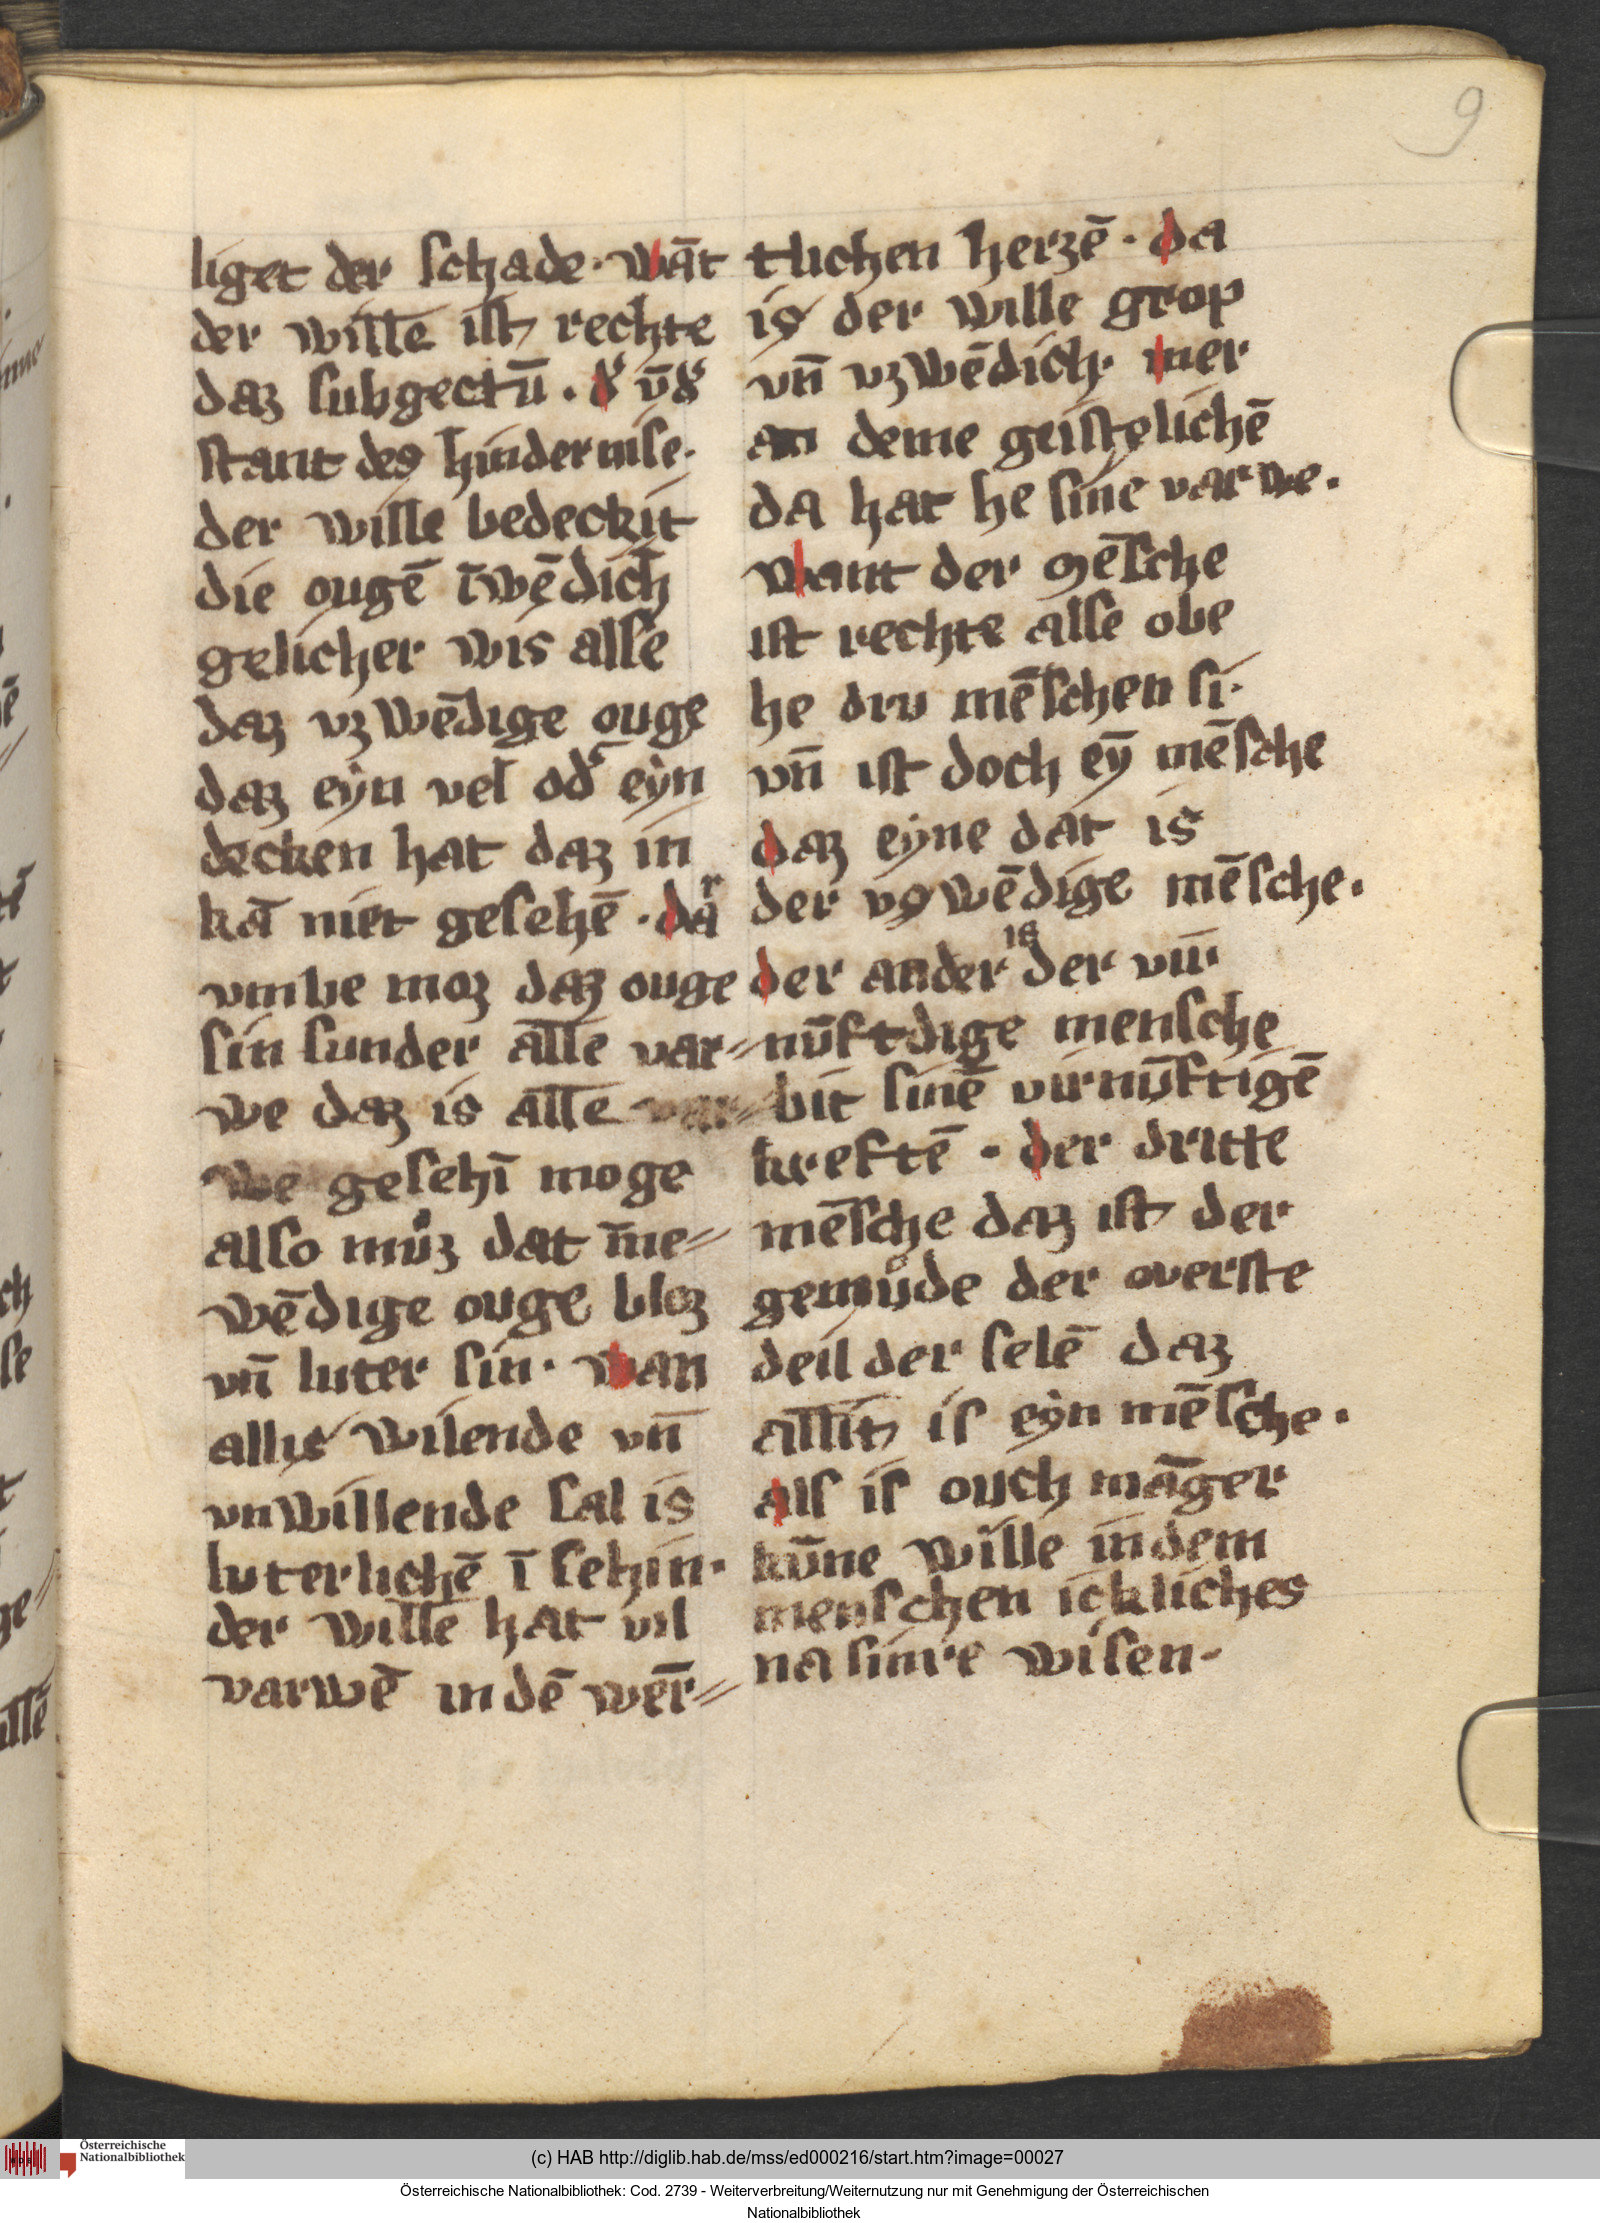 9
liget der schade · wāt
der wille ist rechte
daz subgectū . d᷑ v̄d᷑
stant des hindernise ·
der wille bedeckit
die ougē īwēdich
gelicher wis alse
daz vzwēdige ouge
daz eyn vel od᷑ eyn
decken hat daz in
kā niet gesehē · dar
vmbe moz daz ouge
sin sunder alle var=
we daz is alle var=
we gesehī moge
also můz dat īne=
wēdige ouge bloz
vn̄ luter sin · wan
allis wilende vn̄
vnwillende sal is
luterlichē ī sehin ·
der wille hat vil
varwē in dē wer̄=
tlichen herzē · da
is der wille grop
vn̄ vzwēdich · mer
an deme geistelichē
da hat he sine varwe .
want der mēsche
ist rechte alse obe
he driv mēschen si ·
vn̄ ist doch eȳ mēsche
daz eyne dat is
der vswēdige mēsche .
der ander is der vir
nūftdige mensche
bit sinē virnūftigē
kreftē · der dritte
mēsche daz ist der
gemůde der overste
deil der selē daz
allit is eyn mēsche .
als is ouch māger
kūne wille in dem
menschen ickliches
na sinre wisen ·
Österreichische
Nationalbibliothek
(c) HAB http://diglib.hab.de/mss/ed000216/start.htm?image=00027
Österreichische Nationalbibliothek: Cod. 2739 - Weiterverbreitung/Weiternutzung nur mit Genehmigung der Österreichischen
Nationalbibliothek